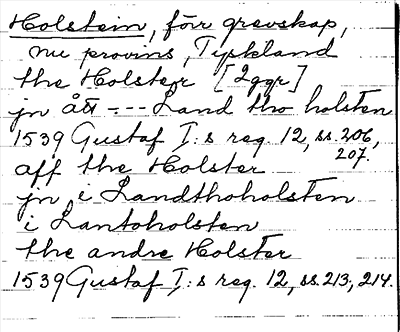 Holstein, förr grevskap,
nu provins, Tyskland
the Holster [2ggr]
jn ått --- Land tho holsten
1539 Gustaf I:s reg. 12, ss. 206,
207.
aff the Holster
jn i Landthoholsten
i Lantoholsten
the andre Holster
1539 Gustaf I:s reg. 12, ss. 213, 214.